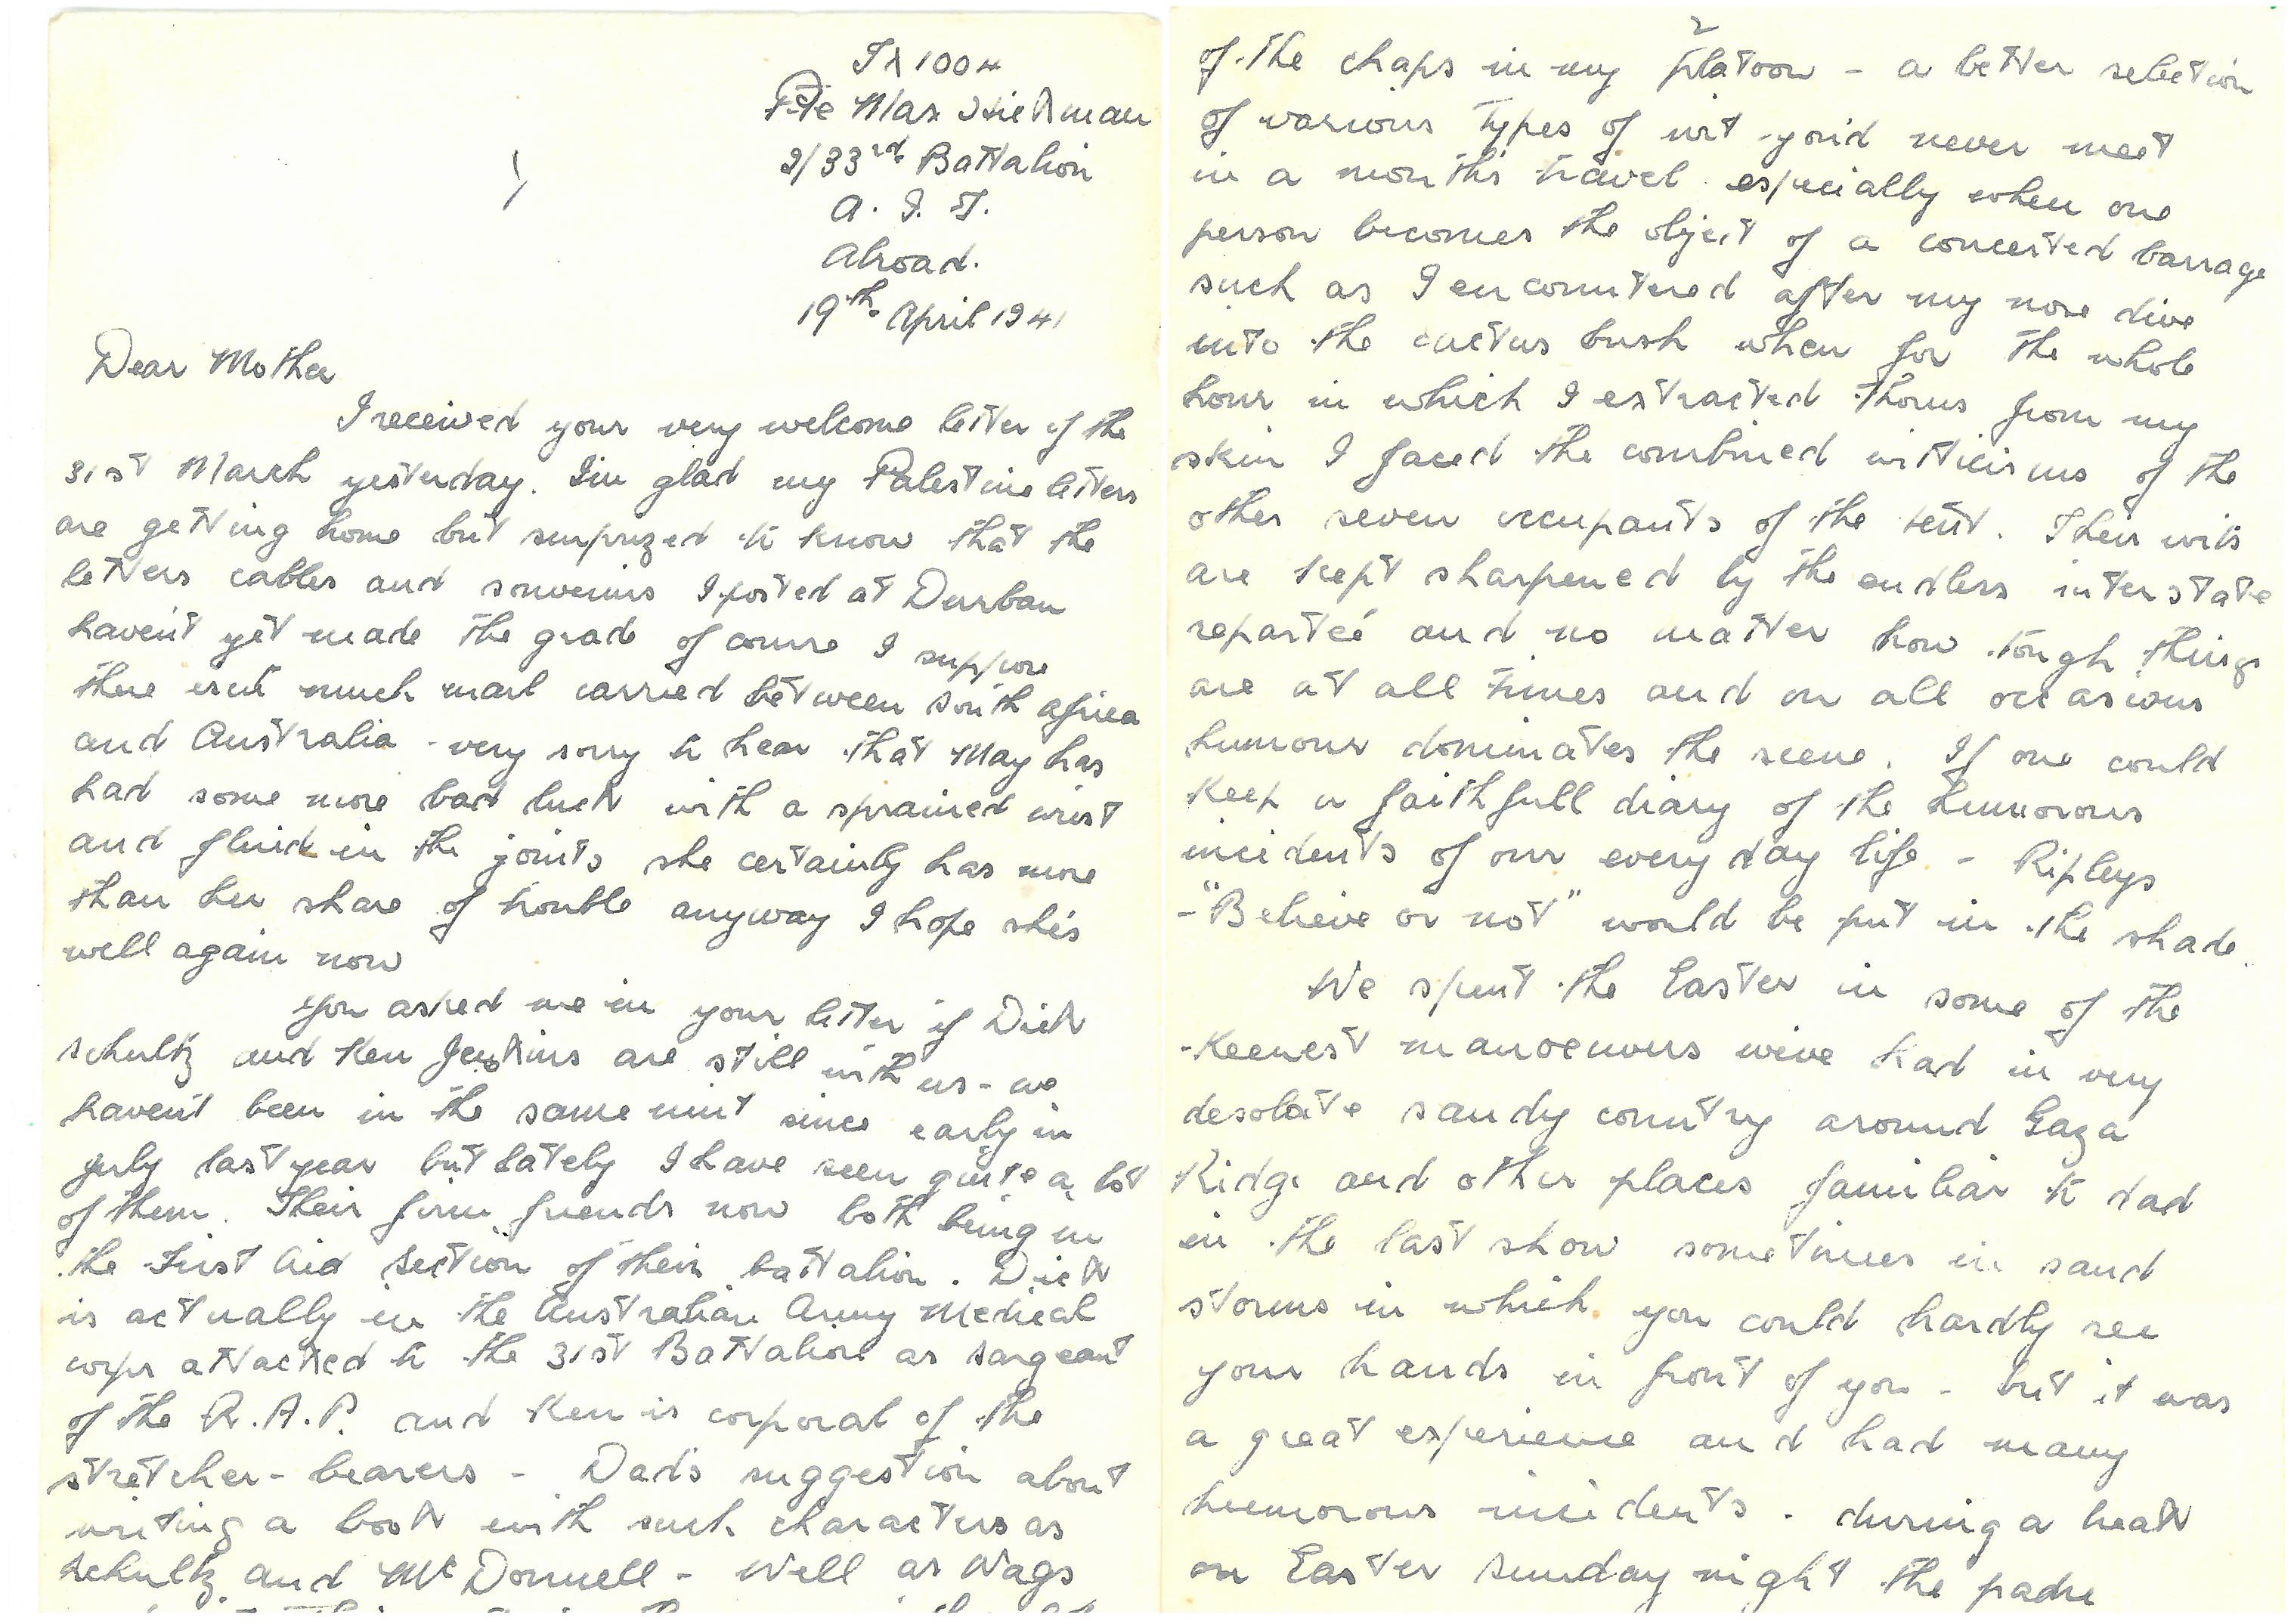 TX1004
Pte Max Hickman
2/33rd Battalion
A. I. F.
Abroad.
19th April 1941
Dear Mother
I received your very welcome letter of the
31st March yesterday. I'm glad my Palestine letters
are getting home but surprized to know that the
letters cables and souvenirs I posted at Durban
haven't yet made the grade of course I suppose
there isn't much mail carried between South Africa
and Australia - very sorry to hear that May has
had some more bad luck with a sprained wrist
and fluid in the joints she certainly has more
than her share of trouble anyway I hope she's
well again now
You asked me in your letter if Dick
Schultz and Ken Jenkins are still with us - we
haven't been in the same unit since early in
July last year but lately I have seen quite a lot
of them. Their firm friends now both being in
the First Aid Section of their battalion. Dick
is actually in the Australian Army Medical
corps attached to the 31st Battalion as Sargeant
of the R.A.P. and Ken is corporal of the
stretcher-bearers - Dad's suggestion about
writing a book with such characters as
Schultz and McDonnell - Well as Wags
2
of the chaps in my platoon - a better selection
of various types of wit you'd never meet
in a month's travel especially when one
person becomes the object of a concerted barrage
such as I encountered after my nose dive
into the cactus bush when for the whole
hour in which I extracted thorns from my
skin I faced the combined witticisms of the
other seven occupants of the tent. Their wits
are kept sharpened by the endless interstate
reparteé and no matter how tough things
are at all times and on all occasions
humour dominates the scene. If one could
keep a faithfull diary of the humorous
incidents of our every day life - Ripleys
- "Believe or not" would be put in the shade.
We spent the Easter in some of the
keenest manoeuvers we've had in very
desolate sandy country around Gaza
Ridge and other places familiar to dad
in the last show sometimes in sand
storms in which you could hardly see
your hands in front of you - but it was
a great experience and had many
humorous incidents - during a break
on Easter Sunday night the padre